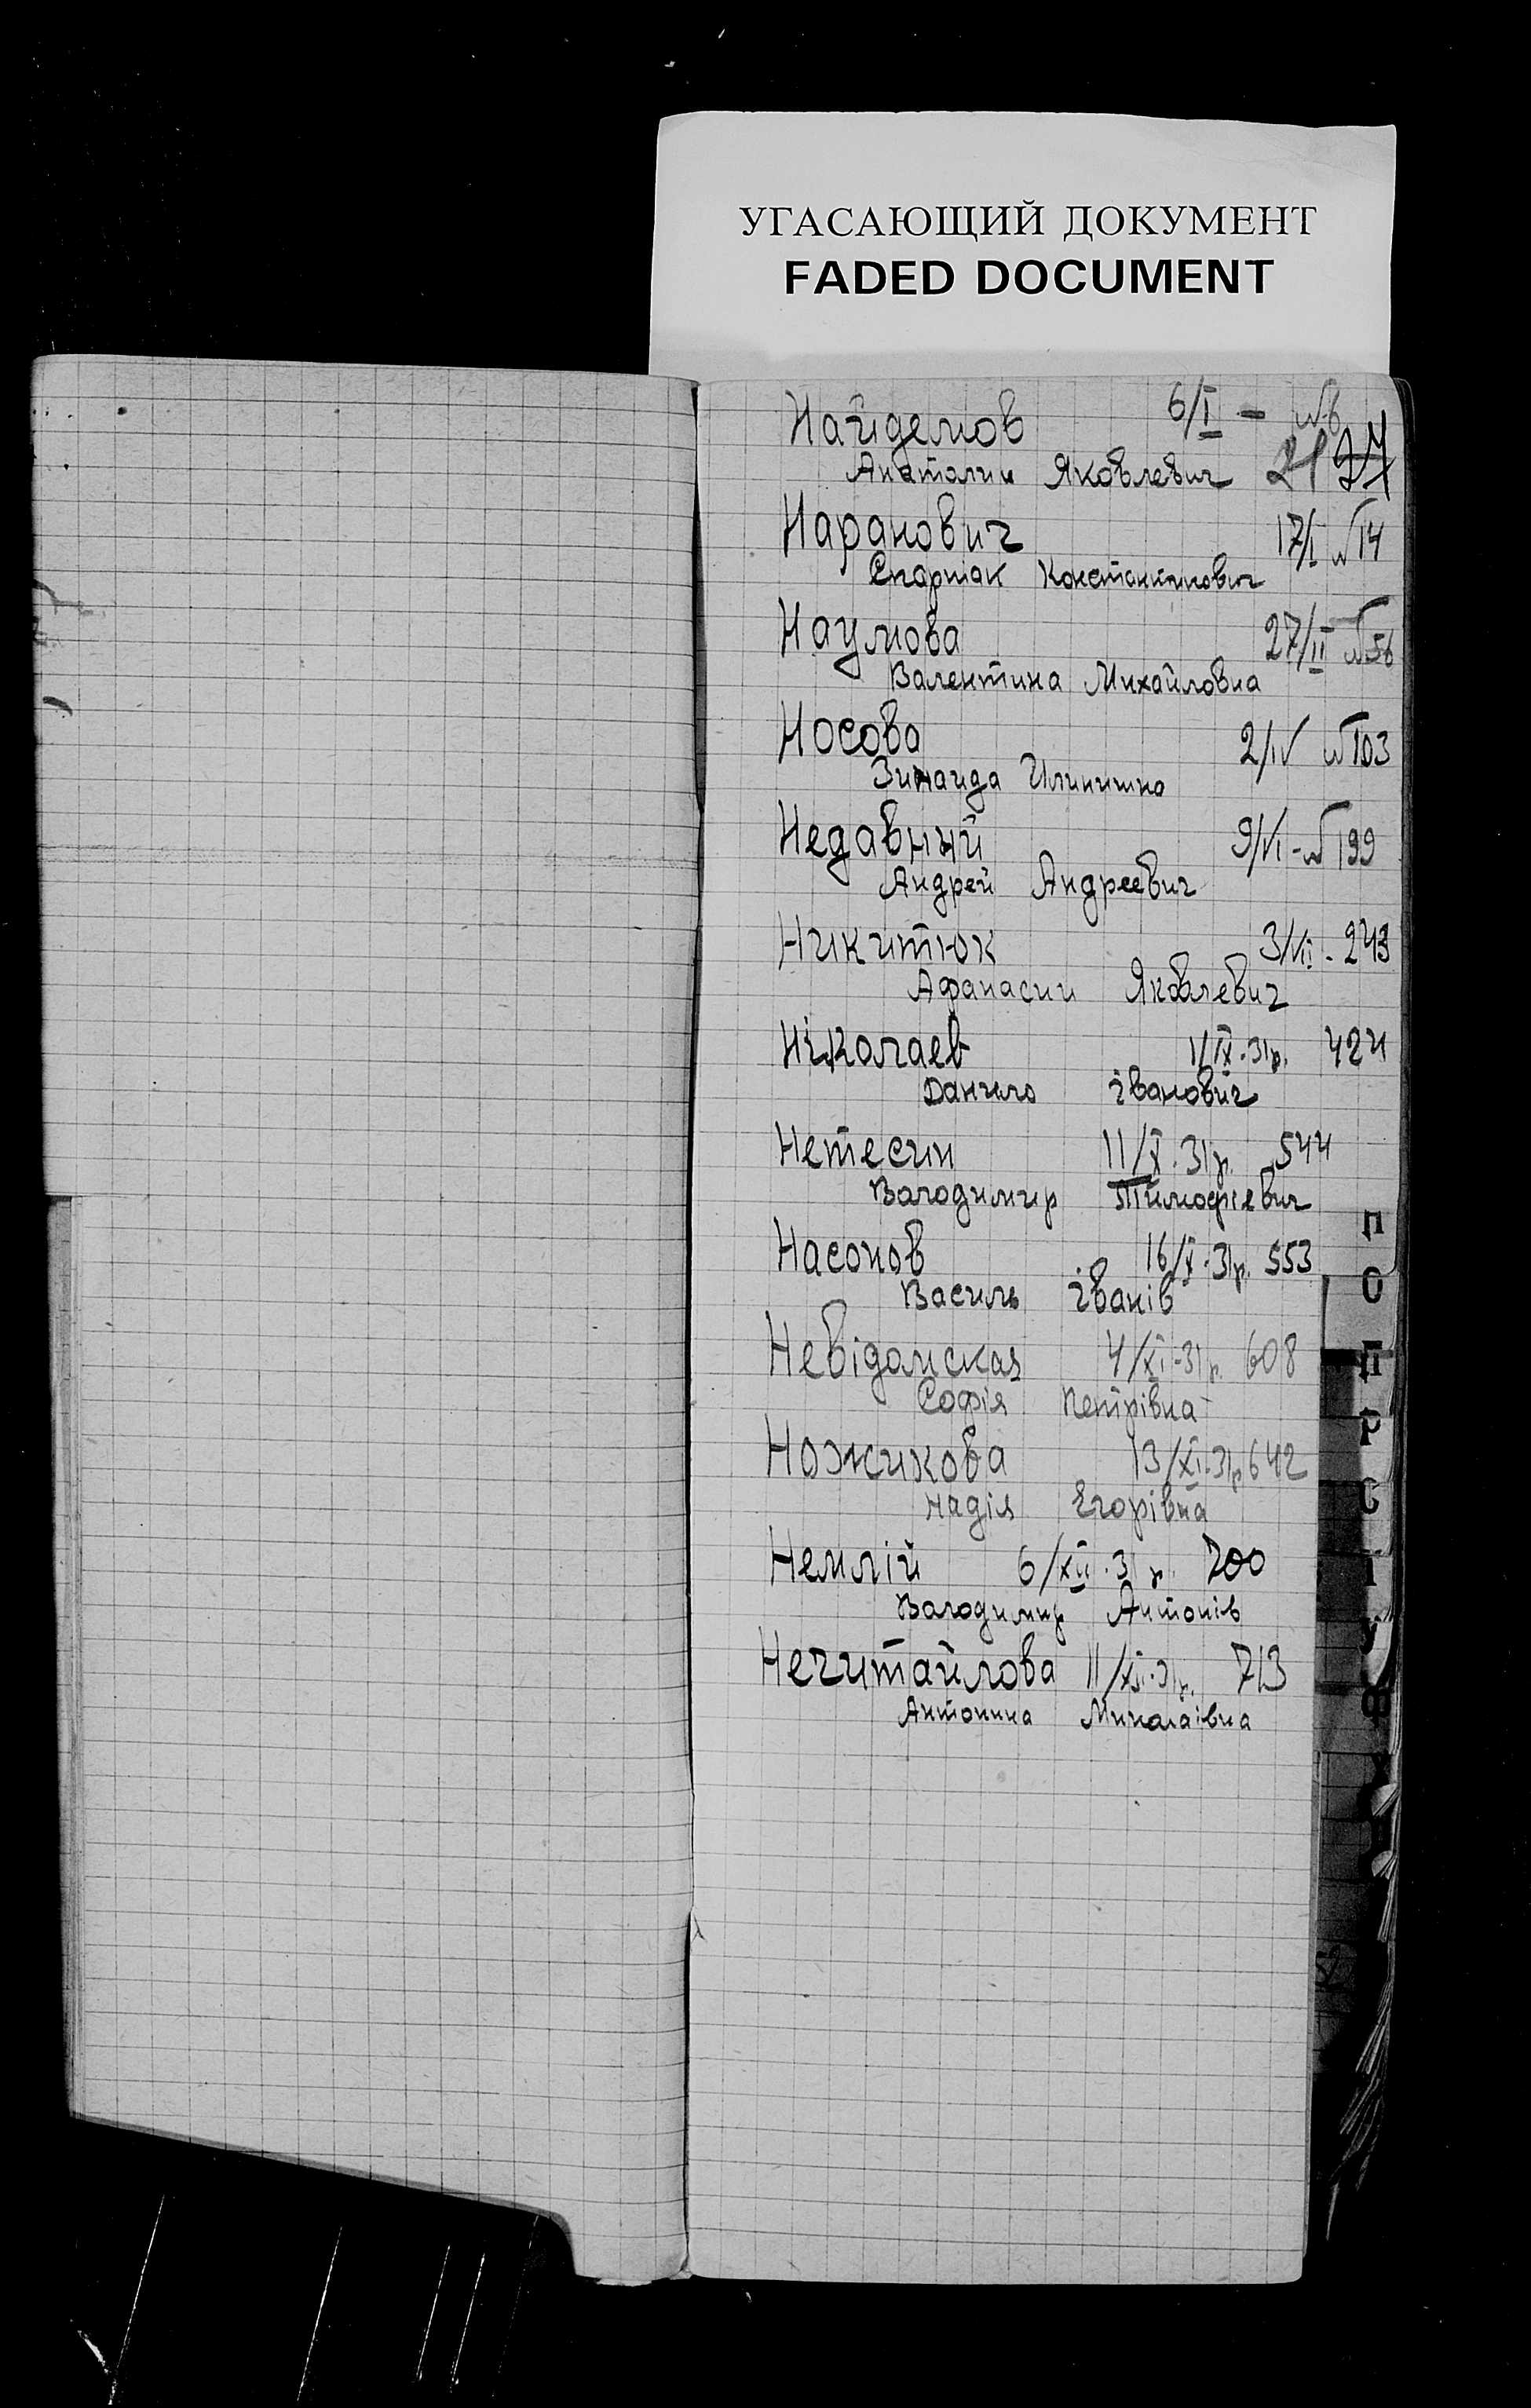 УГАСАЮЩИЙ ДОКУМЕНТ
FADED DOCUMENT
Найденов 6/I - № 6
Анатолии Яковлевич 21 27
Наранович 17/I № 14
Спартак Константинович
Наумова 27/II № 56
Валентина Михайловна
Носова 2/IV № 103
Зинаида Илинишна
Недавный 9/VI - № 199
Андрей Андреевич
Никитюк 3/VII - 243
Афанасии Яковлевич
Ніколаев 1/IX - 31р. 424
Данило Іванович
Нетесин 11/X. 31р. 544
Володимир Тімофієвич
Насонов 16/X - 31р. 553
Василь Іванів
Невідомская 4/XI - 31р. 608
Софія Петрівна
Ножикова 13/XI - 31р 642
Надія Егорівна
Немлій 6/XII . 31 р. 700
Володимир Антонів
Нечитайлова 11/XII - 31р. 713
Антонина Миколаівна
П
О
П
Р
С
Т
У
Ф